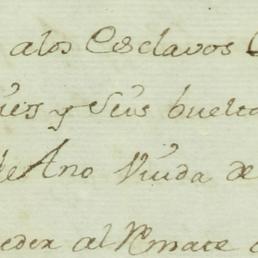 a los Esclavos
y sus buelta
de Ano Viuda de
eder al Remate